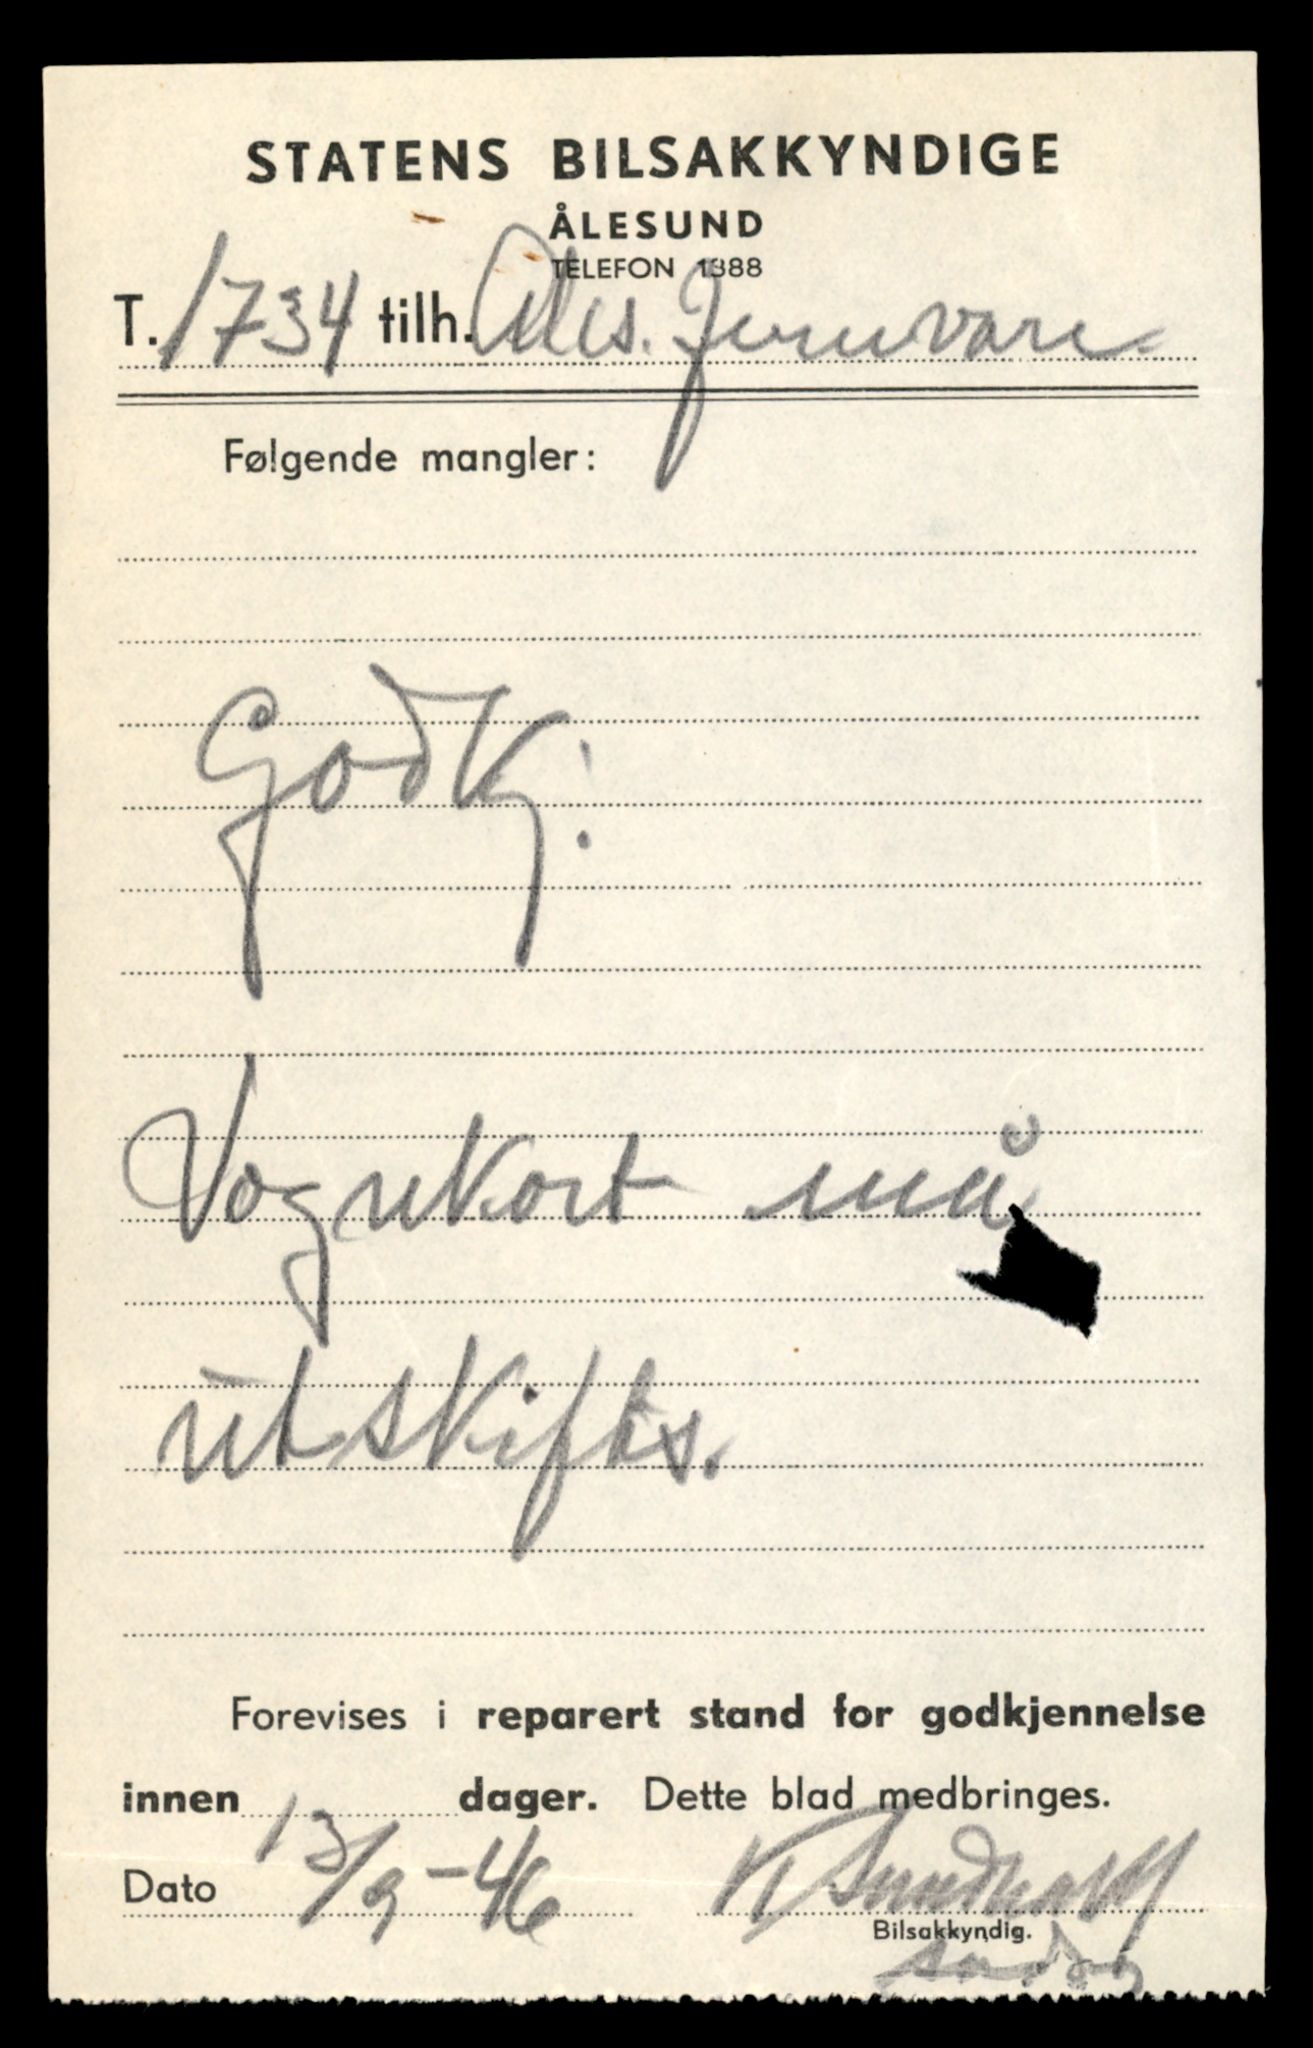 STATENS BILSAKKYNDIGE
ÅLESUND
TELEFON 1388
T. 1734 tilh. Ales. Jernvare
Følgende mangler:
Godkj:
Vognkort må
utskiftes.
Forevises i reparert stand for godkjennelse
innen dager. Dette blad medbringes.
Dato 13/9-46
Bilsakkyndig.